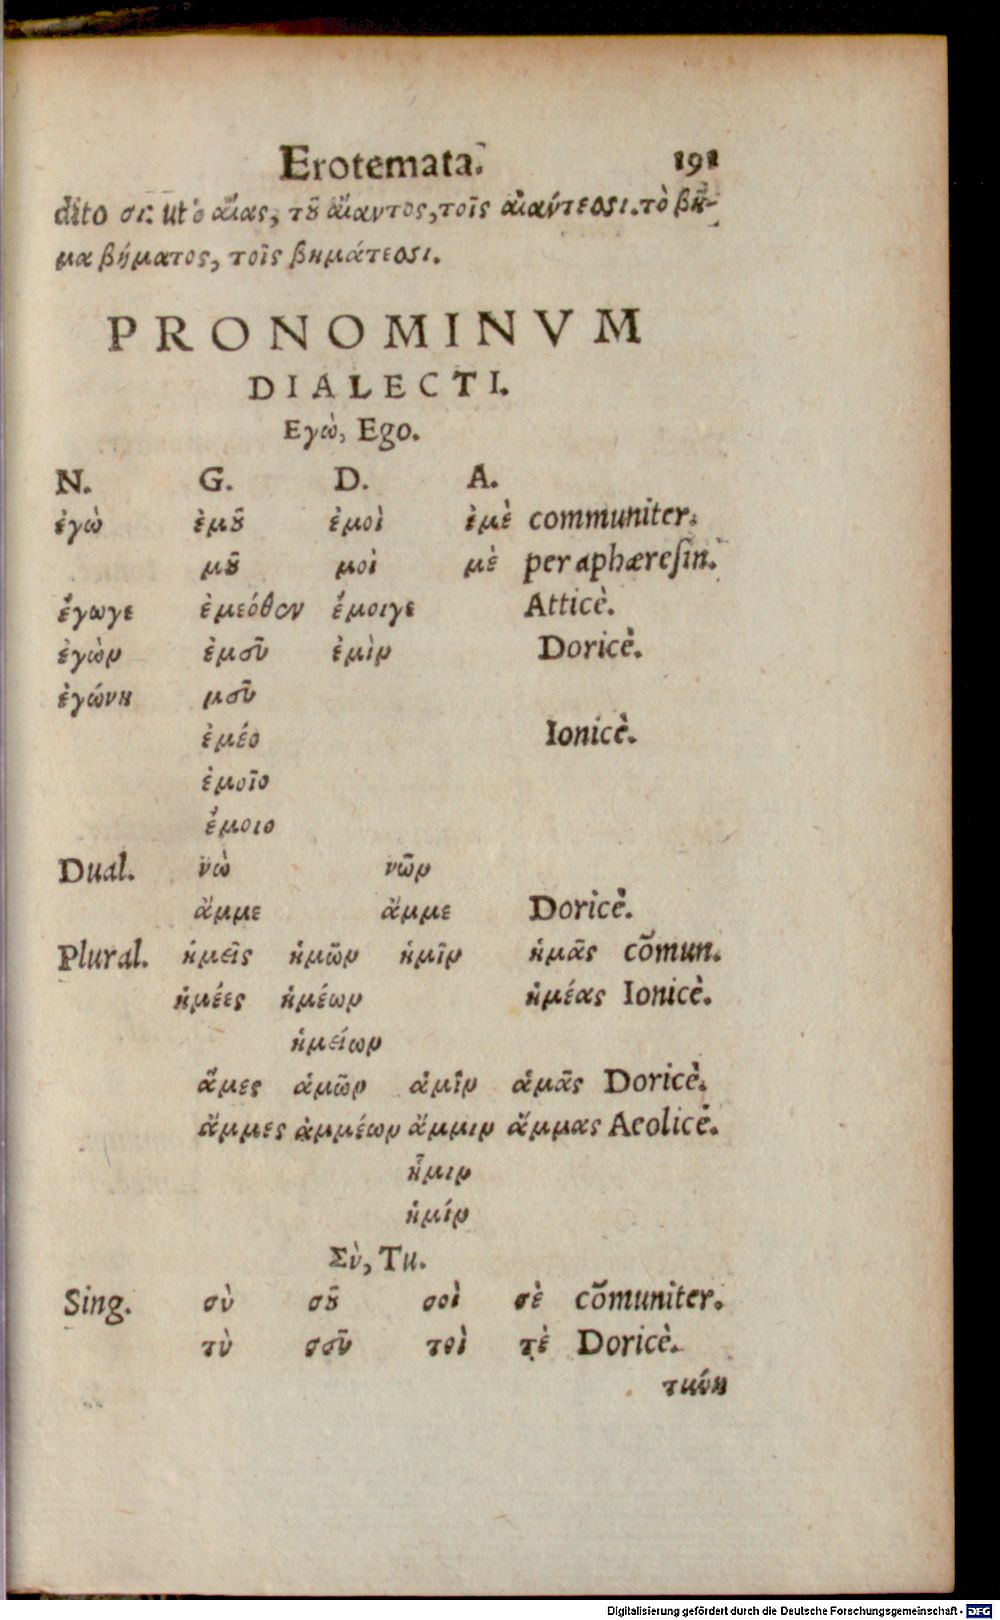 Erotemata. 191
dito σι. ut ὁ αἴας, τοῦ αἴαντος, τοῖς αἰαντεοσι. τὸ βῆ-
μα βήματος, τοῖς βημάτεοσι.
PRONOMINVM
DIALECTI.
Εγὼ, Ego.
N. G. D. A.
ἐγὼ ἐμοῦ ἐμοὶ ἐμὲ communiter.
μοῦ μοὶ μὲ per aphæreſin.
ἔγωγε ἐμεόθεν ἔμοιγε Atticè.
ἐγὼν ἐμεῦ ἐμὶν Doricè.
ἐγώνη μεῦ
ἐμέο Ionicè.
ἐμοῖο
ἔμοιο
Dual. νὼ νῶν
ἄμμε ἄμμε Doricè.
Plural. ἡμεῖς ἡμῶν ἡμῖν ἡμᾶς cõmun.
ἡμέες ἡμέων ἡμέας Ionicè.
ἡμείων
ἅμες ἁμῶν ἁμῖν ἁμᾶς Doricè.
ἄμμες ἀμμέων ἄμμιν ἄμμας Aeolicè.
ἧμιν
ἡμίν
Σὺ, Tu.
Sing. σὺ σοῦ σοὶ σὲ cõmuniter.
τὺ σεῦ τοὶ τὲ Doricè.
τύνη
Digitalisierung gefördert durch die Deutsche Forschungsgemeinschaft - DFG